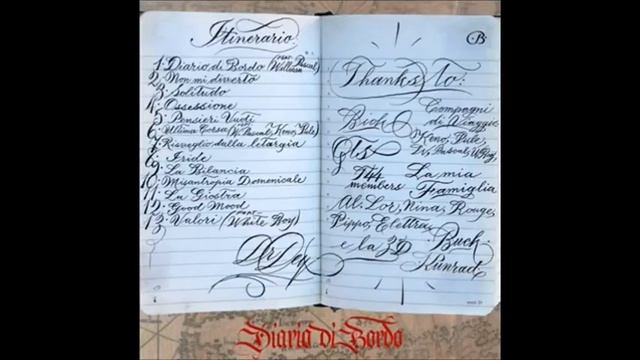 Itinerario
1. Diario di Bordo (feat. William Pascal)
2. Non mi diverto
3. Solitudo
4. Ossessione
5. Pensieri Vuoti
6. Ultima Corsa (W. Pascal, Keno, Pule)
7. Risveglio dalla letargia
8. Iride
9. La Bilancia
10. Misantropia Domenicale
11. La Giostra
12. Good Mood
13. Valori (feat. White Roy)
Dr Dey
B
Thanks to:
Compagni di Viaggio
Keno, Pule,
W. Pascal, W. Roy
Buch
GTS
T44 members
La mia Famiglia
Al. Lor, Nina, Rouge,
Pippo, Elettra
e la 3D
Buch Kunrad
Diario di Bordo